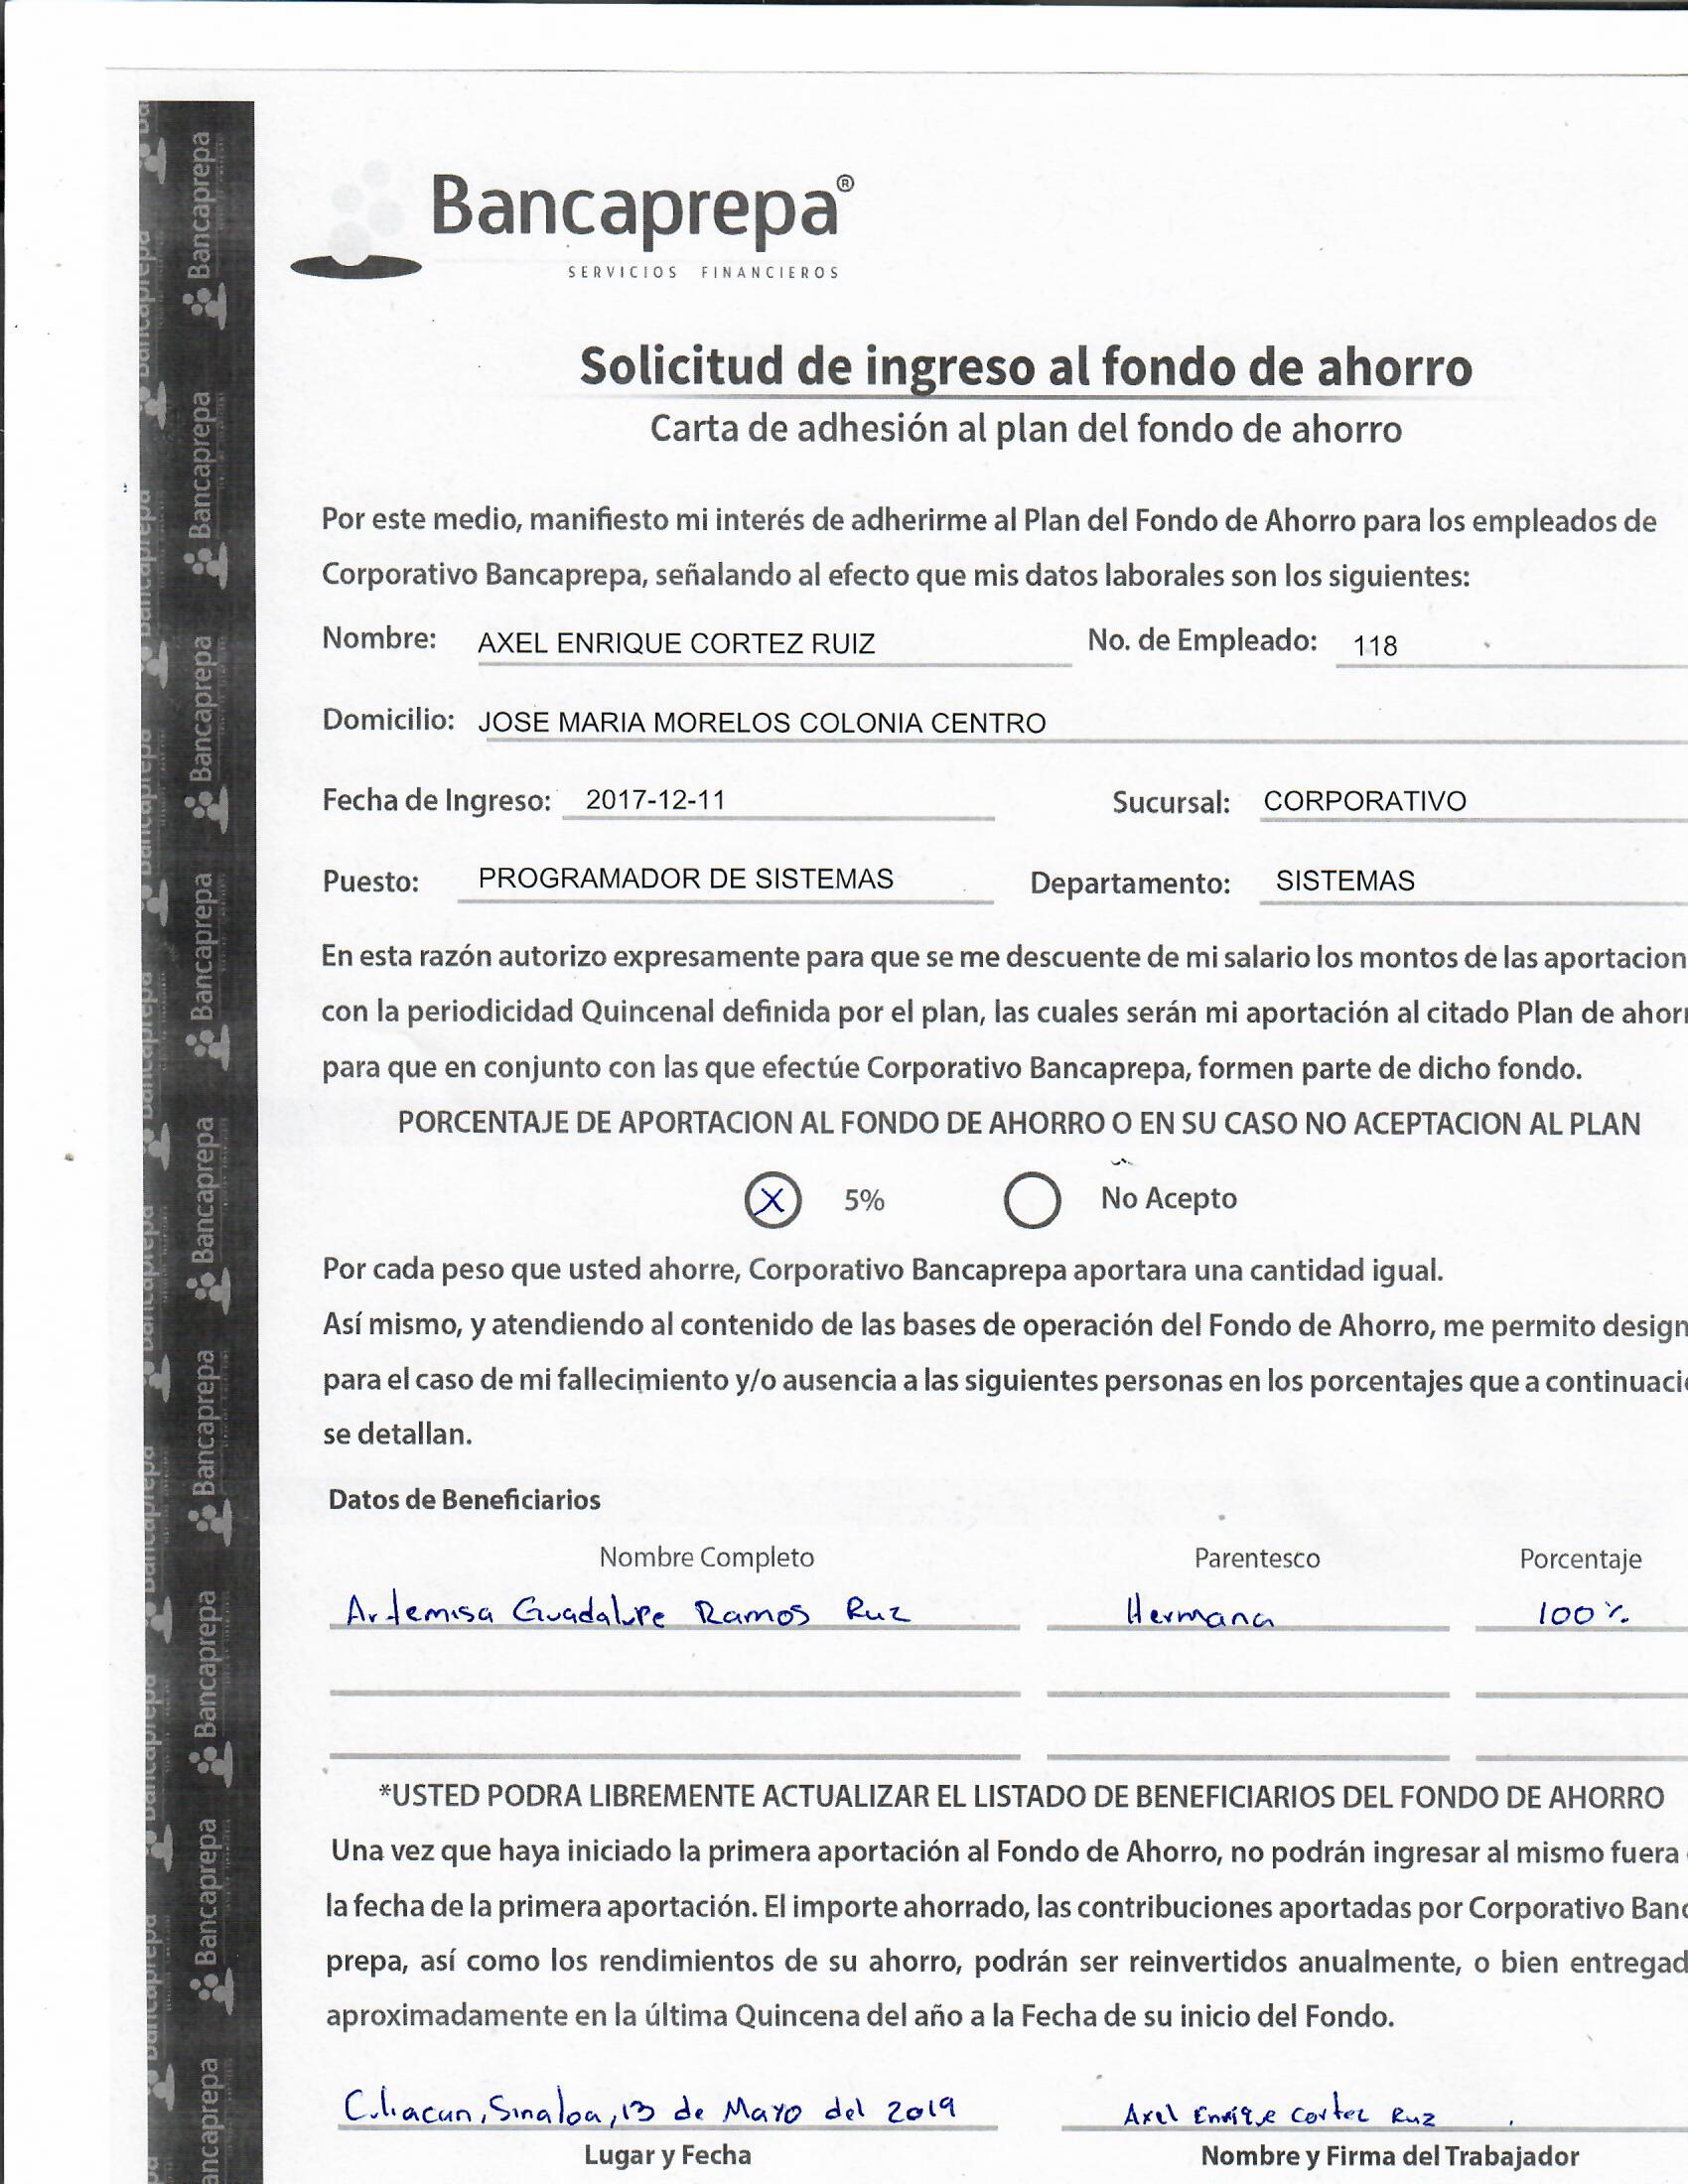 Bancaprepa®
SERVICIOS FINANCIEROS
Solicitud de ingreso al fondo de ahorro
Carta de adhesión al plan del fondo de ahorro
Por este medio, manifiesto mi interés de adherirme al Plan del Fondo de Ahorro para los empleados de
Corporativo Bancaprepa, señalando al efecto que mis datos laborales son los siguientes:
Nombre: AXEL ENRIQUE CORTEZ RUIZ No. de Empleado: 118
Domicilio: JOSE MARIA MORELOS COLONIA CENTRO
Fecha de Ingreso: 2017-12-11 Sucursal: CORPORATIVO
Puesto: PROGRAMADOR DE SISTEMAS Departamento: SISTEMAS
En esta razón autorizo expresamente para que se me descuente de mi salario los montos de las aportacion
con la periodicidad Quincenal definida por el plan, las cuales serán mi aportación al citado Plan de ahorr
para que en conjunto con las que efectúe Corporativo Bancaprepa, formen parte de dicho fondo.
PORCENTAJE DE APORTACION AL FONDO DE AHORRO O EN SU CASO NO ACEPTACION AL PLAN
X 5% No Acepto
Por cada peso que usted ahorre, Corporativo Bancaprepa aportara una cantidad igual.
Así mismo, y atendiendo al contenido de las bases de operación del Fondo de Ahorro, me permito design
para el caso de mi fallecimiento y/o ausencia a las siguientes personas en los porcentajes que a continuaci
se detallan.
Datos de Beneficiarios
Nombre Completo Parentesco Porcentaje
Artemisa Guadalupe Ramos Ruiz Hermana 100%
*USTED PODRA LIBREMENTE ACTUALIZAR EL LISTADO DE BENEFICIARIOS DEL FONDO DE AHORRO
Una vez que haya iniciado la primera aportación al Fondo de Ahorro, no podrán ingresar al mismo fuera
la fecha de la primera aportación. El importe ahorrado, las contribuciones aportadas por Corporativo Banc
prepa, así como los rendimientos de su ahorro, podrán ser reinvertidos anualmente, o bien entregad
aproximadamente en la última Quincena del año a la Fecha de su inicio del Fondo.
Culiacan, Sinaloa, 13 de Mayo del 2019 Axel Enrique Cortez Ruiz
Lugar y Fecha Nombre y Firma del Trabajador